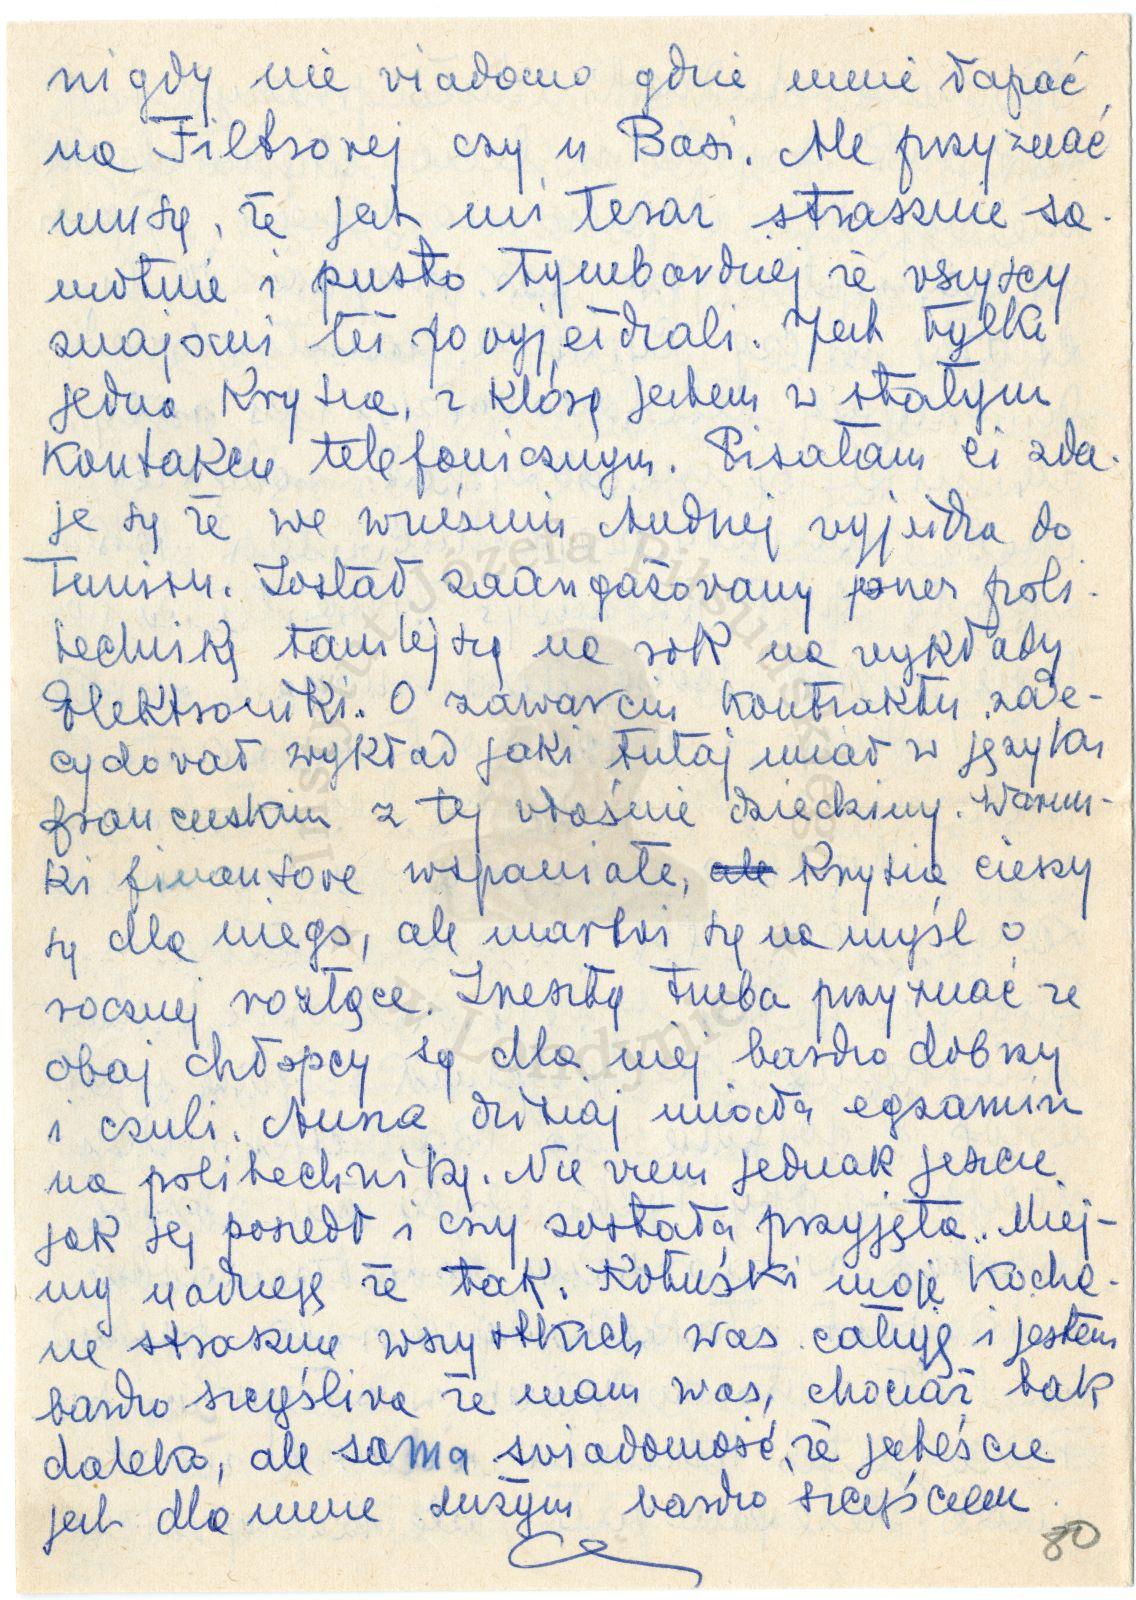 nigdy nie wiadomo gdzie mnie łapać
na Filtrowej czy u Basi. Ale przyznać
muszę, że jest mi teraz strasznie sa-
motnie i pusto tymbardziej że wszyscy
znajomi też powyjeżdżali. Jest tylko
jedna Krysia, z którą jestem w stałym
kontakcie telefonicznym. Pisałam ci zda-
je się że we wrześniu Andrzej wyjeżdża do
Tunisu. Został zaangażowany przez poli-
technikę tamtejszą na rok na wykłady
Elektroniki. O zawarciu kontraktu zade-
cydował wykład jaki tutaj miał w języku
francuskim z tej właśnie dziedziny. Warun-
ki finansowe wspaniałe, ale Krysia cieszy
się dla niego, ale martwi się na myśl o
rocznej rozłące. Zresztą trzeba przyznać że
obaj chłopcy są dla niej bardzo dobrzy
i czuli. Anna dzisiaj miała egzamin
na politechnikę. Nie wiem jednak jeszcze
jak jej poszedł i czy została przyjęta. Miej-
my nadzieję że tak. Kotuśki moje kocha-
ne strasznie wszystkich was całuję i jestem
bardzo szczęśliwa że mam was, chociaż tak
daleko, ale sama świadomość, że jesteście
jest dla mnie dużym bardzo szczęściem.
80
Instytut Józefa Piłsudskiego
w Londynie